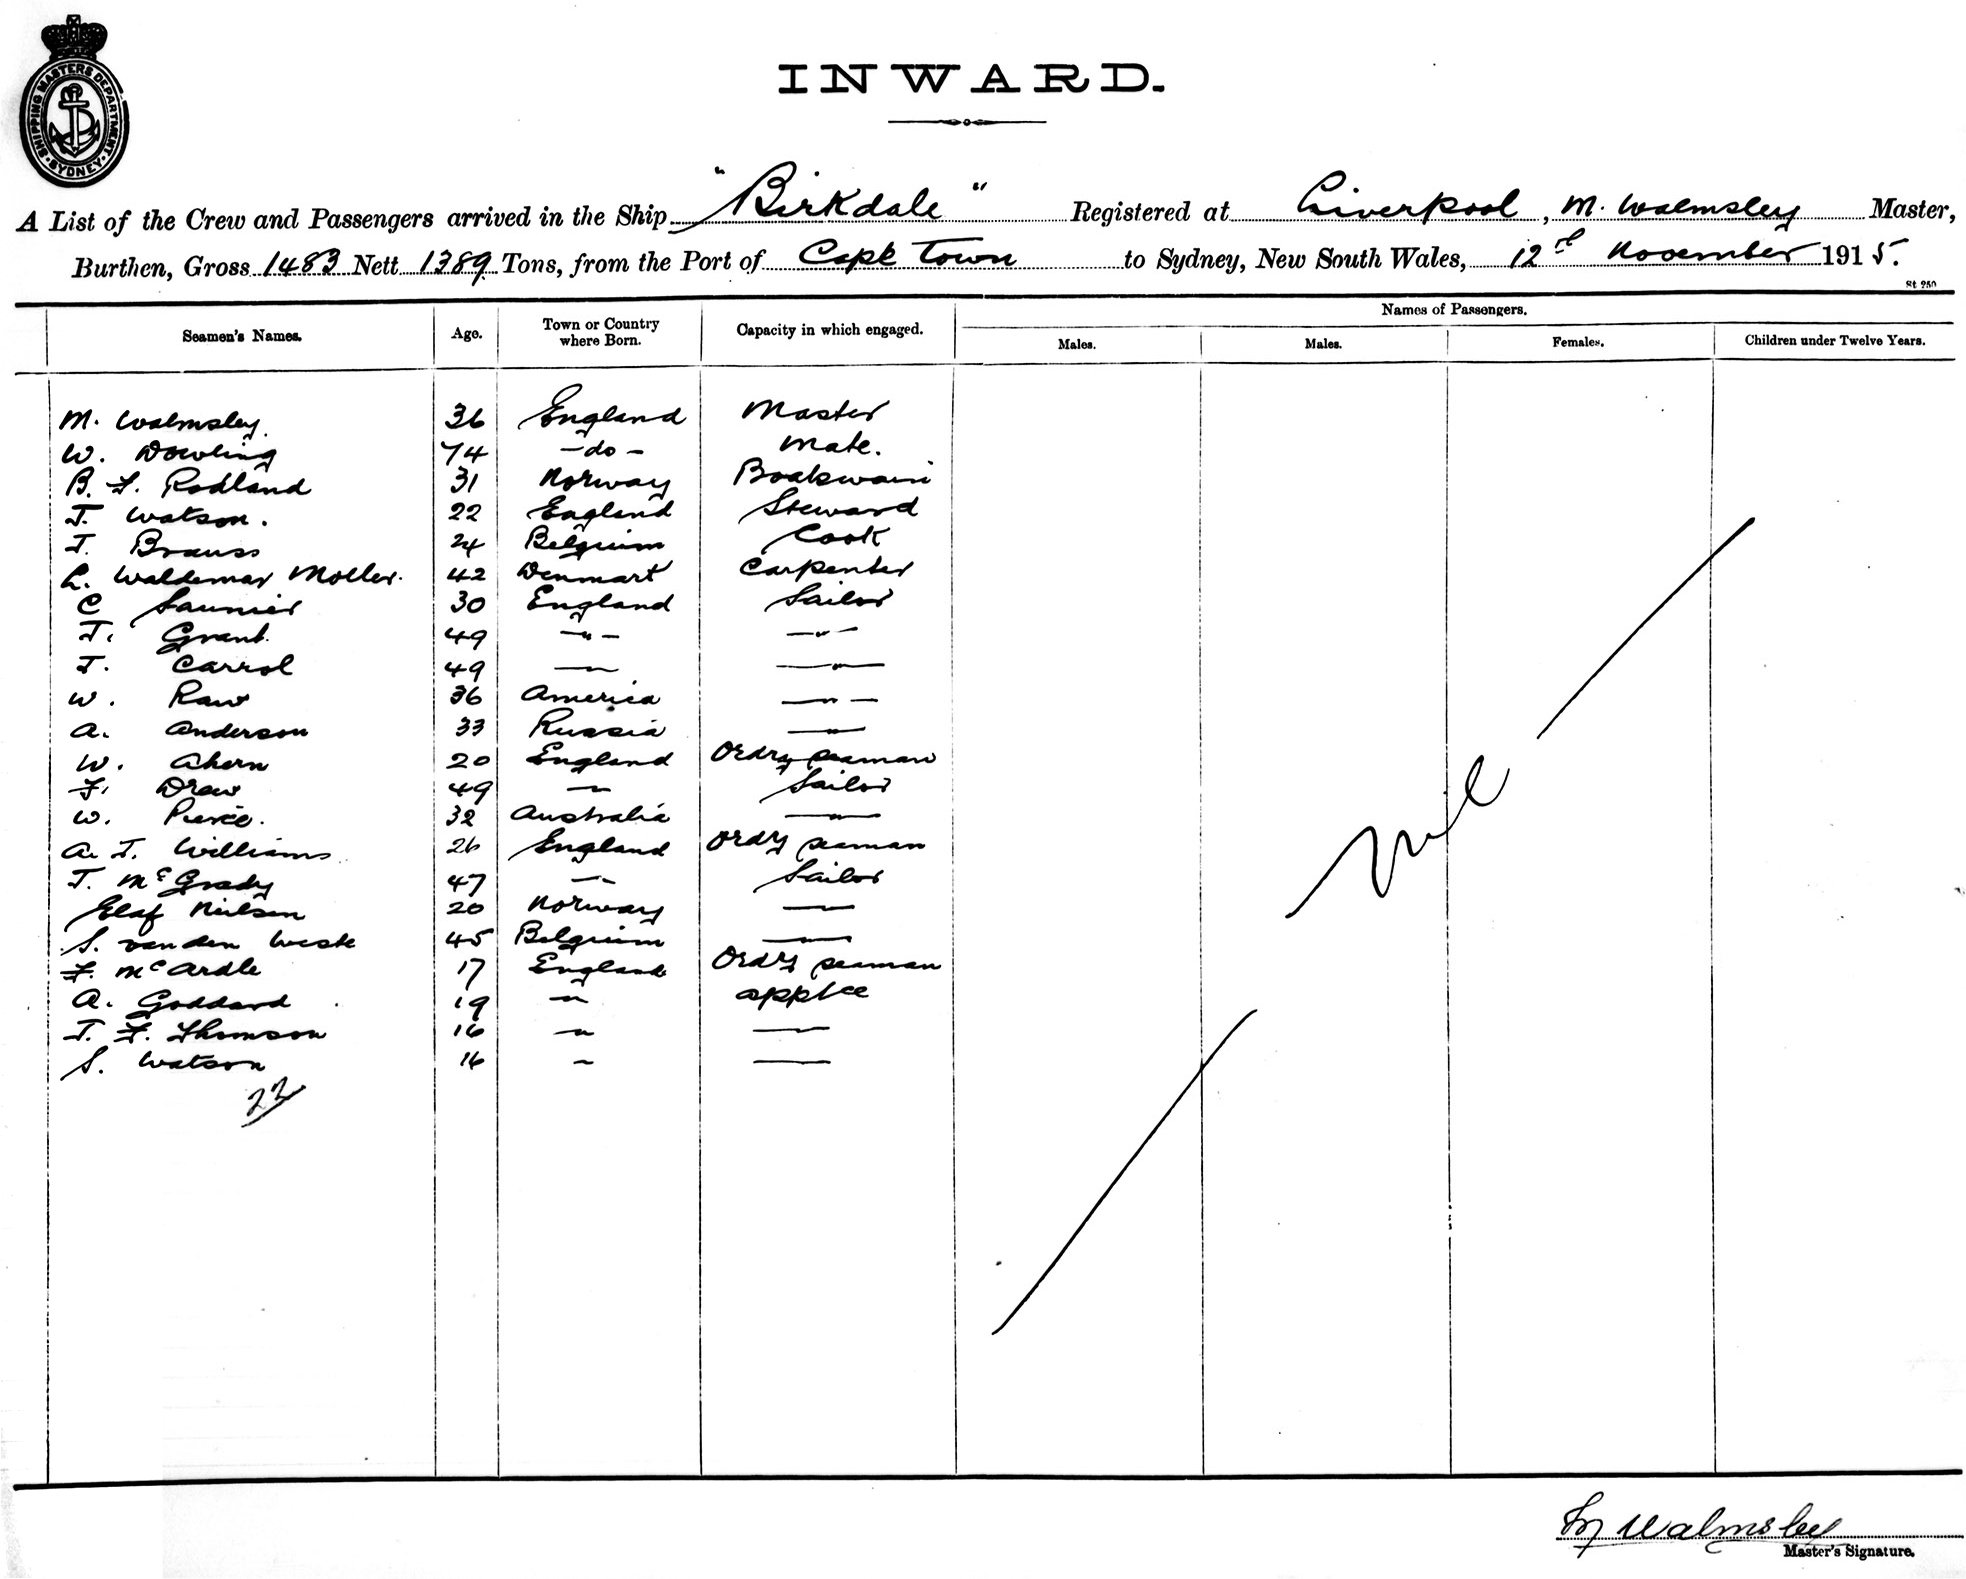 SHIPPING MASTERS DEPARTMENT · SYDNEY ·
INWARD.
A List of the Crew and Passengers arrived in the Ship "Birkdale" Registered at Liverpool, M. Walmsley Master,
Burthen, Gross 1483 Nett 1389 Tons, from the Port of Cape Town to Sydney, New South Wales, 12th November 1915.
St 250
Names of Passengers.
Seamen's Names. Age. Town or Country where Born. Capacity in which engaged. Males. Males. Females. Children under Twelve Years.
M. Walmsley. 36 England Master
W. Dowling 74 -do- Mate.
B. F. Rodland 31 Norway Boatswain
T. Watson. 22 England Steward
J. Brauss 24 Belgium Cook
L. Waldemar Moller. 42 Denmark Carpenter
C Saunier 30 England Sailor
J. Grant 49 -"- -"-
J. Carrol 49 -"- -"-
W. Raw 36 America -"-
A. Anderson 33 Russia -"-
W. Ahern 20 England Ordry seaman
F. Drew 49 " Sailor
W. Pierce. 32 Australia -"-
A. J. Williams 26 England Ordy seaman
T. McGrady 47 -"- Sailor
Elaf Neilsen 20 Norway -"-
S. van den Weste 45 Belgium -"-
F. McArdle 17 England Ordy seaman
A. Goddard 19 -"- apptce
J. F. Thomson 16 -"- -"-
S. Watson 16 " -"-
22
Nil
M Walmsley
Master's Signature.